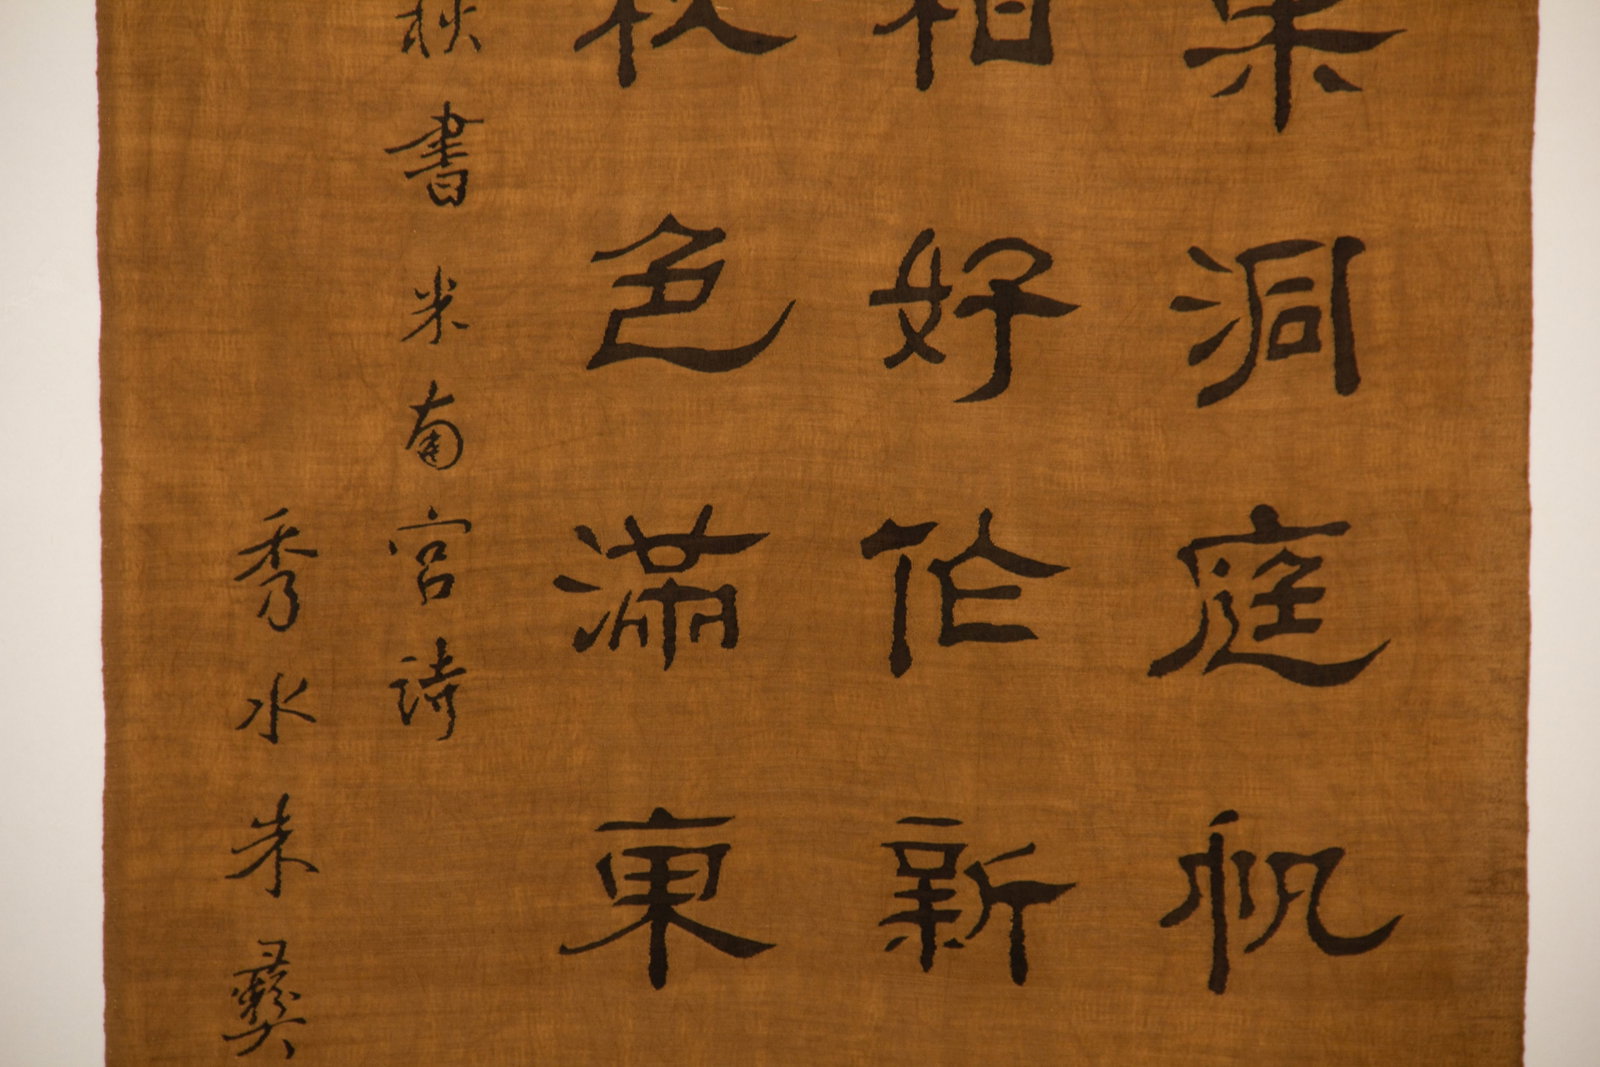 葉洞庭帆
柑好作新
秋色滿東
秋書米南宮詩
秀水朱彝